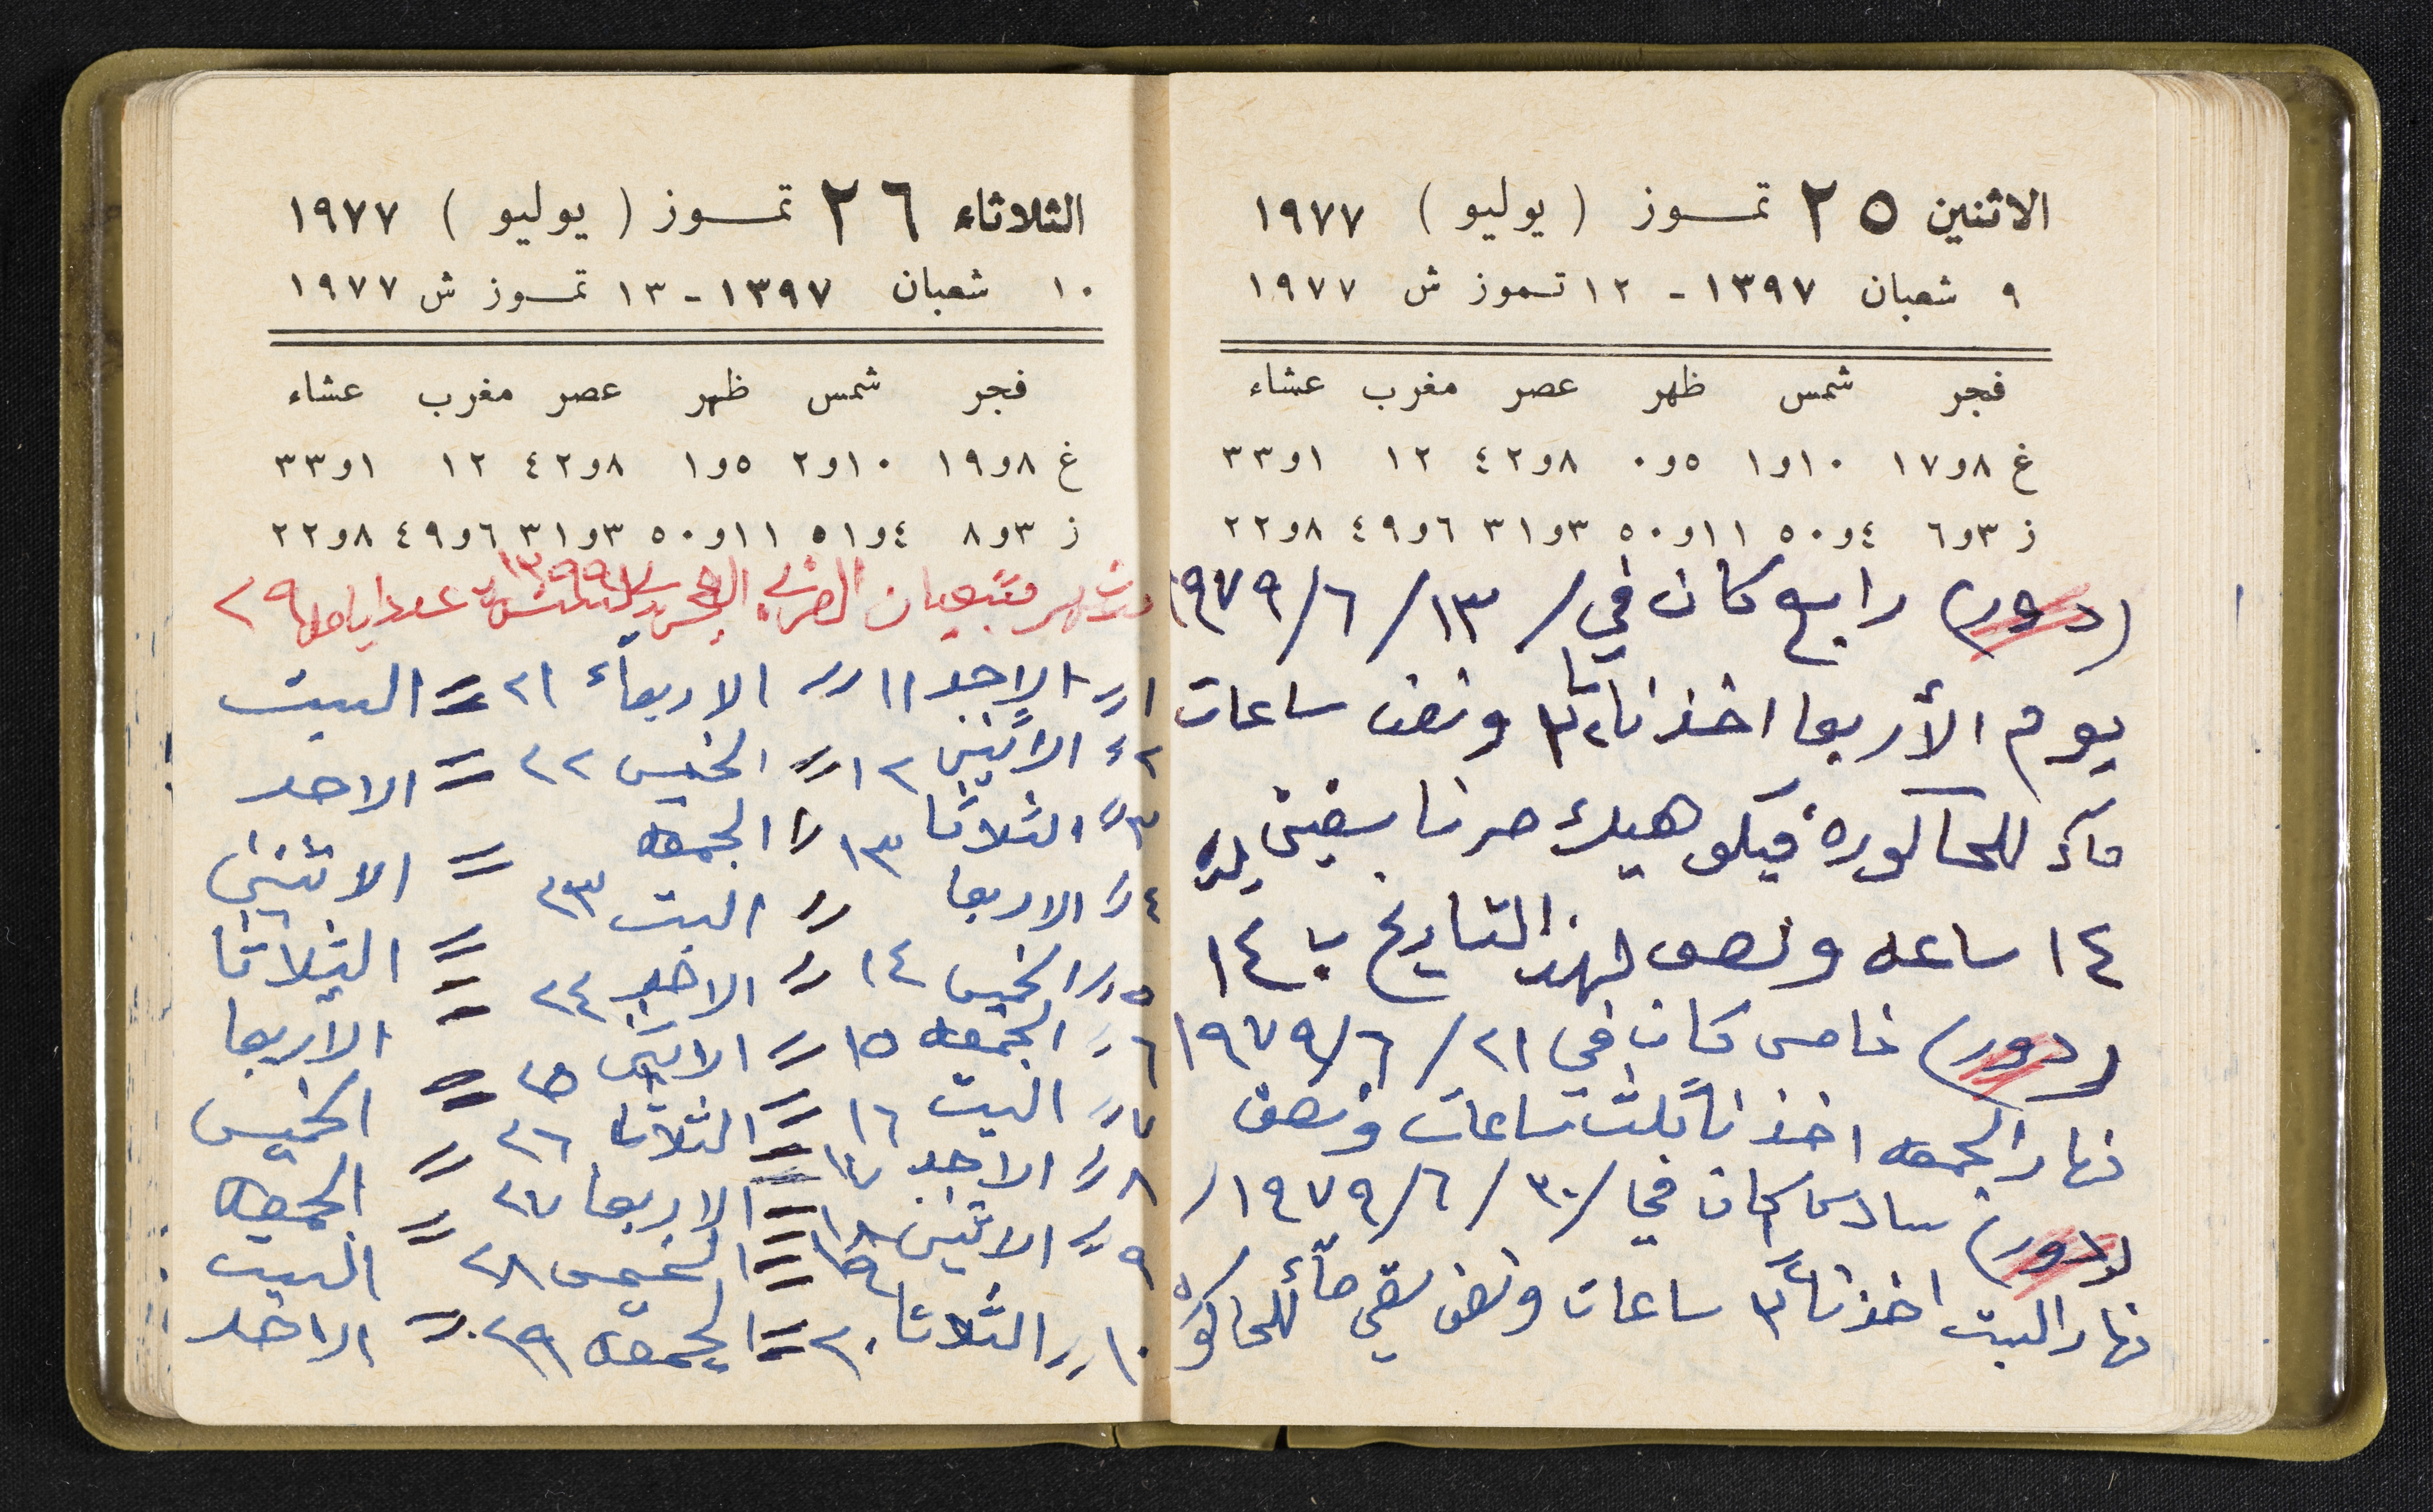 الاثنين ٢٥ تمـوز (يوليو) ١٩٧٧
٩ شعبان ١٣٩٧ - ١٢ تـموز ش ١٩٧٧
فجر شمس ظهر عصر مغرب عشاء
غ ٨و١٧ ١٠و١ ٥و٠ ٨و٤٢ ١٢ ١و٣٣
ز ٣و٦ ٤و٥٠ ١١و٥٠ ٣و٣١ ٦و٤٩ ٨و٢٢
(دور) رابع كان في / ١٣ / ٦ / ١٩٧٩
يوم الأربعا اخذنا ٣ ونصف ساعات
ماء للحاكورة فيكو هيك صرنا
١٤ ساعه ونصف لهذ التاريخ ١٤
(دور) خامس كان في ٢١ / ٦ / ١٩٧٩
نهار الجمعه اخذنا ثلث ساعات ونصف
(دور) سادس كان في / ٣٠ / ٦ / ١٩٧٩ /
نهار السبت اخذنا ٣ ساعات ونصف سقي ماء للحاكوره
الثلاثاء ٢٦ تمـوز (يوليو) ١٩٧٧
١٠ شعبان ١٣٩٧ - ١٣ تمـوز ش ١٩٧٧
فجر شمس ظهر عصر مغرب عشاء
غ ٨و١٩ ١٠و٢ ٥و١ ٨و٤٢ ١٢ ١و٣٣
ز ٣و٨ ٤و٥١ ١١و٥٠ ٣و٣١ ٦و٤٩ ٨و٢٢
شهر شعبان ١٣٩٩ عدد ايامه ٢٩
١ // الاحد ١١ // الاربعاء ٢١ = السبت
٢ // الاثنين ١٢ // الخميس ٢٢ = الاحد
٣ // الثلاثا ١٣ // الجمعه = الاثنين
٤ // الاربعا // السبت ٢٣ = الثلاثا
٥ // الخميس ١٤ // الاحد ٢٤ = الاربعا
٦ // الجمعه ١٥ = الاثنين ٢٥ = الخميس
٧ // السبت ١٦ = الثلاثا ٢٦ = الجمعه
٨ // الاحد ١٧ = الاربعا ٢٧ = السبت
٩ // الاثنين ١٨ = الخميس ٢٨ = الاحد
١٠ // الثلاثا ٢٠ = الجمعه ٢٩
١٩